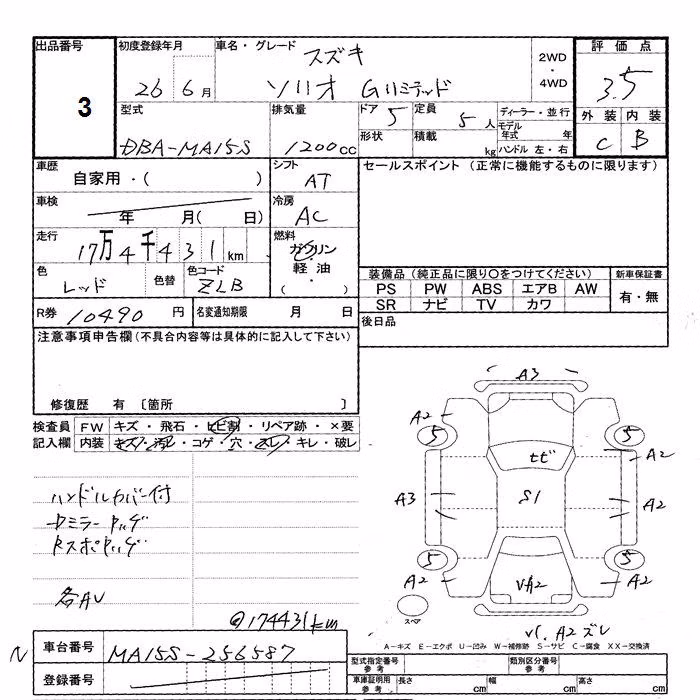 出品番号 初度登録年月 車名・グレード スズキ 2WD・4WD 評価点
3 26 6月 ソリオ Gリミテッド 3.5
型式 排気量 ドア 5 定員 5人 ディーラー・並行 外装 内装
DBA-MA15S 1200cc 形状 積載 kg モデル年式 年 ハンドル 左・右 C B
車歴 自家用・( ) シフト AT セールスポイント (正常に機能するものに限ります)
車検 年 月( 日) 冷房 AC
走行 17万4千431km 燃料 ガソリン・軽油・( )
色 レッド 色替 色コード ZLB
装備品 (純正品に限り○をつけてください) 新車保証書
PS PW ABS エアB AW 有・無
SR ナビ TV カワ
R券 10490円 名変通知期限 月 日 後日品
注意事項申告欄 (不具合内容等は具体的に記入して下さい)
修復歴 有 〔箇所 〕
検査員記入欄 FW キズ・飛石・ヒビ割・リペア跡・×要
内装 キズ・汚レ・コゲ・穴・スレ・キレ・破レ
ハンドルカバー付
ドミラーAUゲ
RスポAUゲ
各AU
@174431km
A3
A2
5
5
ヒビ
A2
A3
S1
A2
5
5
A2
VA2
A2
スペア
V1、A2ズレ
A-キズ E-エクボ U-凹み W-補修跡 S-サビ C-腐食 XX-交換済
N 車台番号 MA15S-256587
登録番号
型式指定番号 参考 類別区分番号 参考
車庫証明用 参考 長さ cm 幅 cm 高さ cm